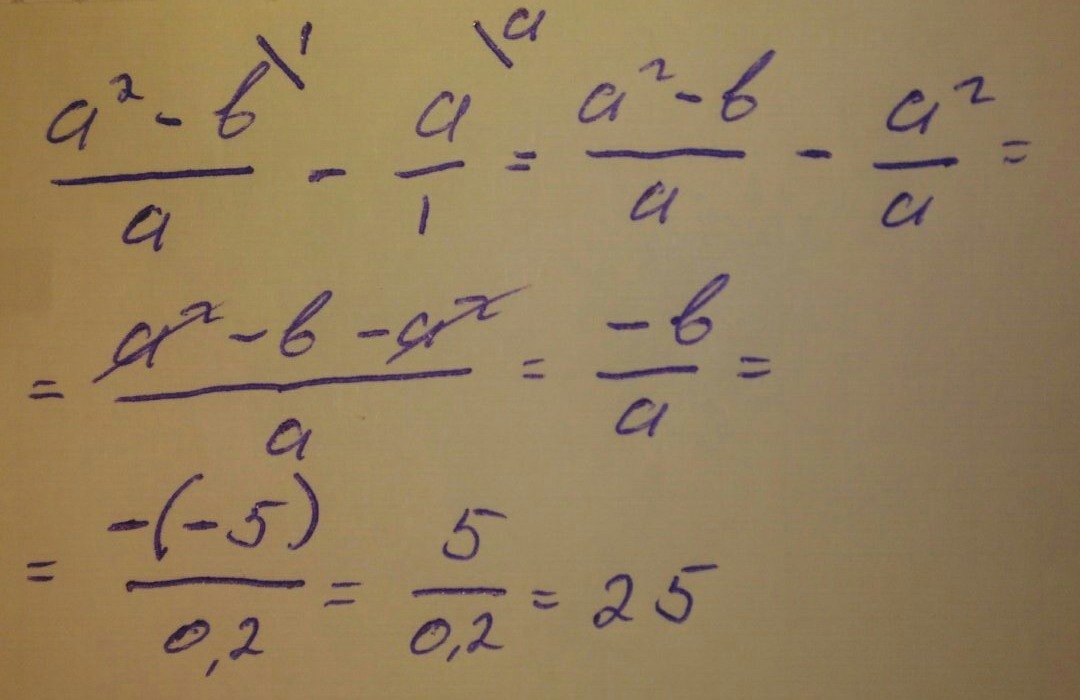 \frac{a² - b^{\1}}{a} - \frac{a^{\a}}{1} = \frac{a² - b}{a} - \frac{a²}{a} =
= \frac{a² - b - a²}{a} = \frac{-b}{a} =
= \frac{-(-5)}{0,2} = \frac{5}{0,2} = 25